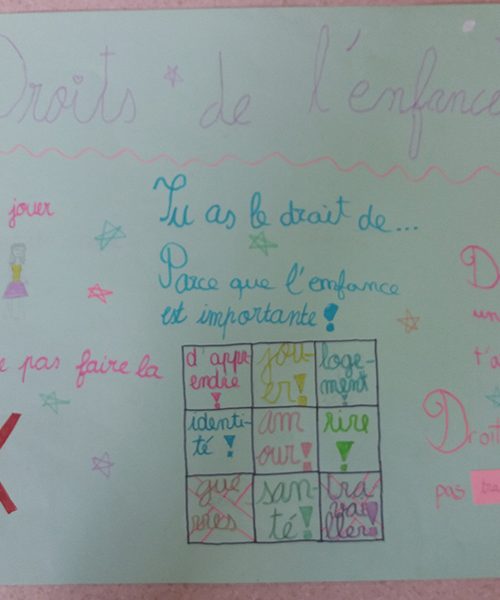 Droits de l'enfance
jouer
Tu as le droit de...
Parce que l'enfance
est importante !
pas faire la
d'appr
endre !
jou-
er !
loge-
ment !
identi-
té !
am
our !
rire
!
gue
rres
san-
té !
tra
vai
ller !
un
t'a
Droit
pas